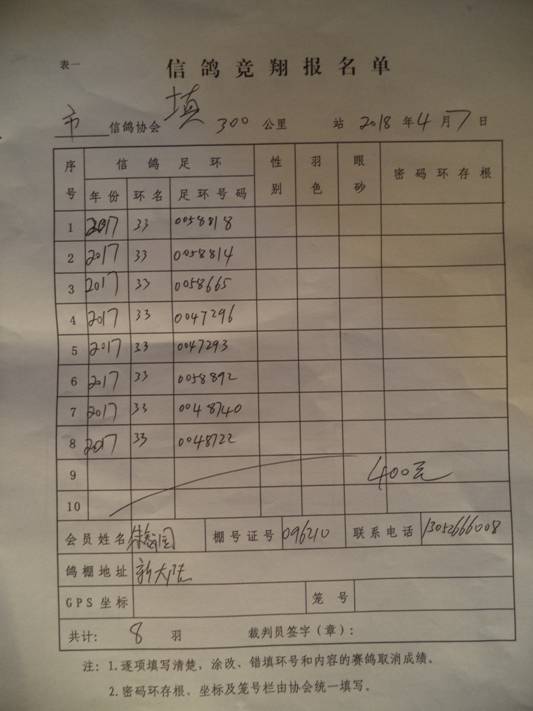 表一
信鸽竞翔报名单
市 信鸽协会 填 300 公里 站 2018 年 4 月 7 日
序号 信鸽足环 性别 羽色 眼砂 密码环存根
年份 环名 足环号码
1 2017 33 0058818
2 2017 33 0058814
3 2017 33 0058665
4 2017 33 0047296
5 2017 33 0047293
6 2017 33 0058892
7 2017 33 0048740
8 2017 33 0048722
9 400元
10
会员姓名 棚号证号 096210 联系电话 13052666008
鸽棚地址 新大陆
GPS坐标 笼号
共计: 8 羽 裁判员签字(章):
注: 1.逐项填写清楚, 涂改、错填环号和内容的赛鸽取消成绩。
2.密码环存根、坐标及笼号栏由协会统一填写。